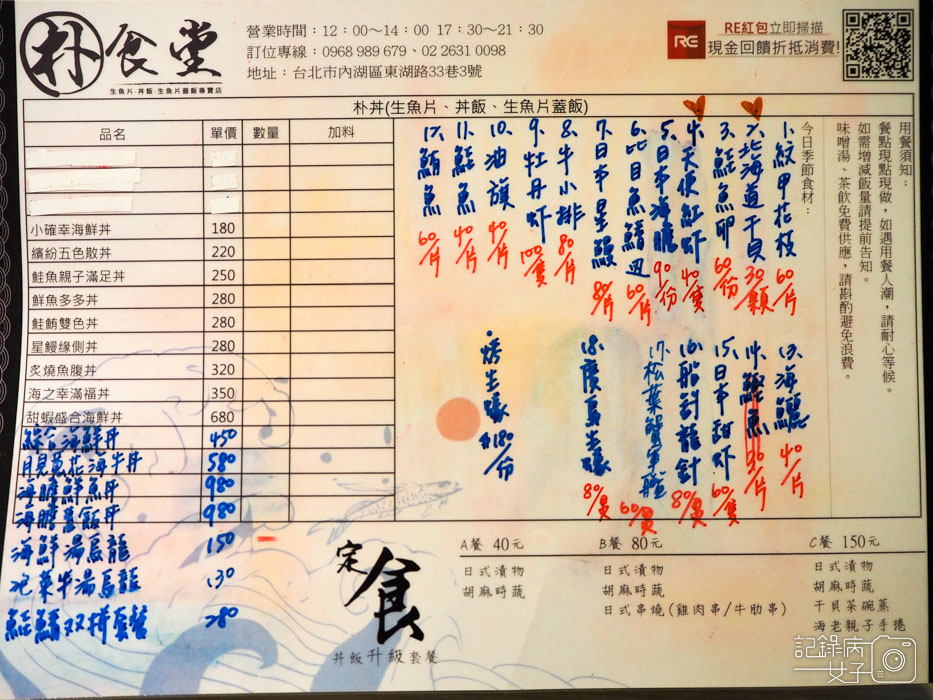 朴食堂
生魚片·丼飯·生魚片蓋飯專賣店
營業時間：12：00～14：00 17：30～21：30
訂位專線：0968 989 679、02 2631 0098
地址：台北市內湖區東湖路33巷3號
RE紅包立即掃描
現金回饋折抵消費!
RE
朴丼(生魚片、丼飯、生魚片蓋飯)
品名 單價 數量 加料
小確幸海鮮丼 180
繽紛五色散丼 220
鮭魚親子滿足丼 250
鮮魚多多丼 280
鮭鮪雙色丼 280
星鰻緣側丼 280
炙燒魚腹丼 320
海之幸滿福丼 350
甜蝦盛合海鮮丼 680
綜合海鮮丼 450
月見蔥花海牛丼 580
海膽鮮魚丼 980
海膽蓋飯丼 980
海鮮湯烏龍 150
泡菜牛湯烏龍 130
鮭鯖双拼套餐 280
用餐須知：
餐點現點現做，如遇用餐人潮，請耐心等候。
如需增減飯量請提前告知。
味噌湯、茶飲免費供應，請斟酌避免浪費。
今日季節食材：
1.紋甲花枝 60/片
2.北海道干貝 30/顆
3.鮭魚卵 60/份
4.天使紅蝦 40/隻
5.日本海膽 90/份
6.比目魚鰭邊 60/片
7.日本星鰻 80/片
8.牛小排 80/片
9.牡丹蝦 100/隻
10.油旗 40/片
11.鮭魚 40/片
12.鮪魚 60/片
13.海鱺 40/片
14.魚 30/片
15.日本甜蝦 60/隻
16.船釣龍針 80/片
17.松葉蟹軍艦 60/貫
18.廣島生蠔 80/貫
烤生蠔 $180/份
定食
丼飯升級套餐
A餐 40元
日式漬物
胡麻時蔬
B餐 80元
日式漬物
胡麻時蔬
日式串燒(雞肉串/牛肋串)
C餐 150元
日式漬物
胡麻時蔬
干貝茶碗蒸
海老親子手捲
記錄病女子